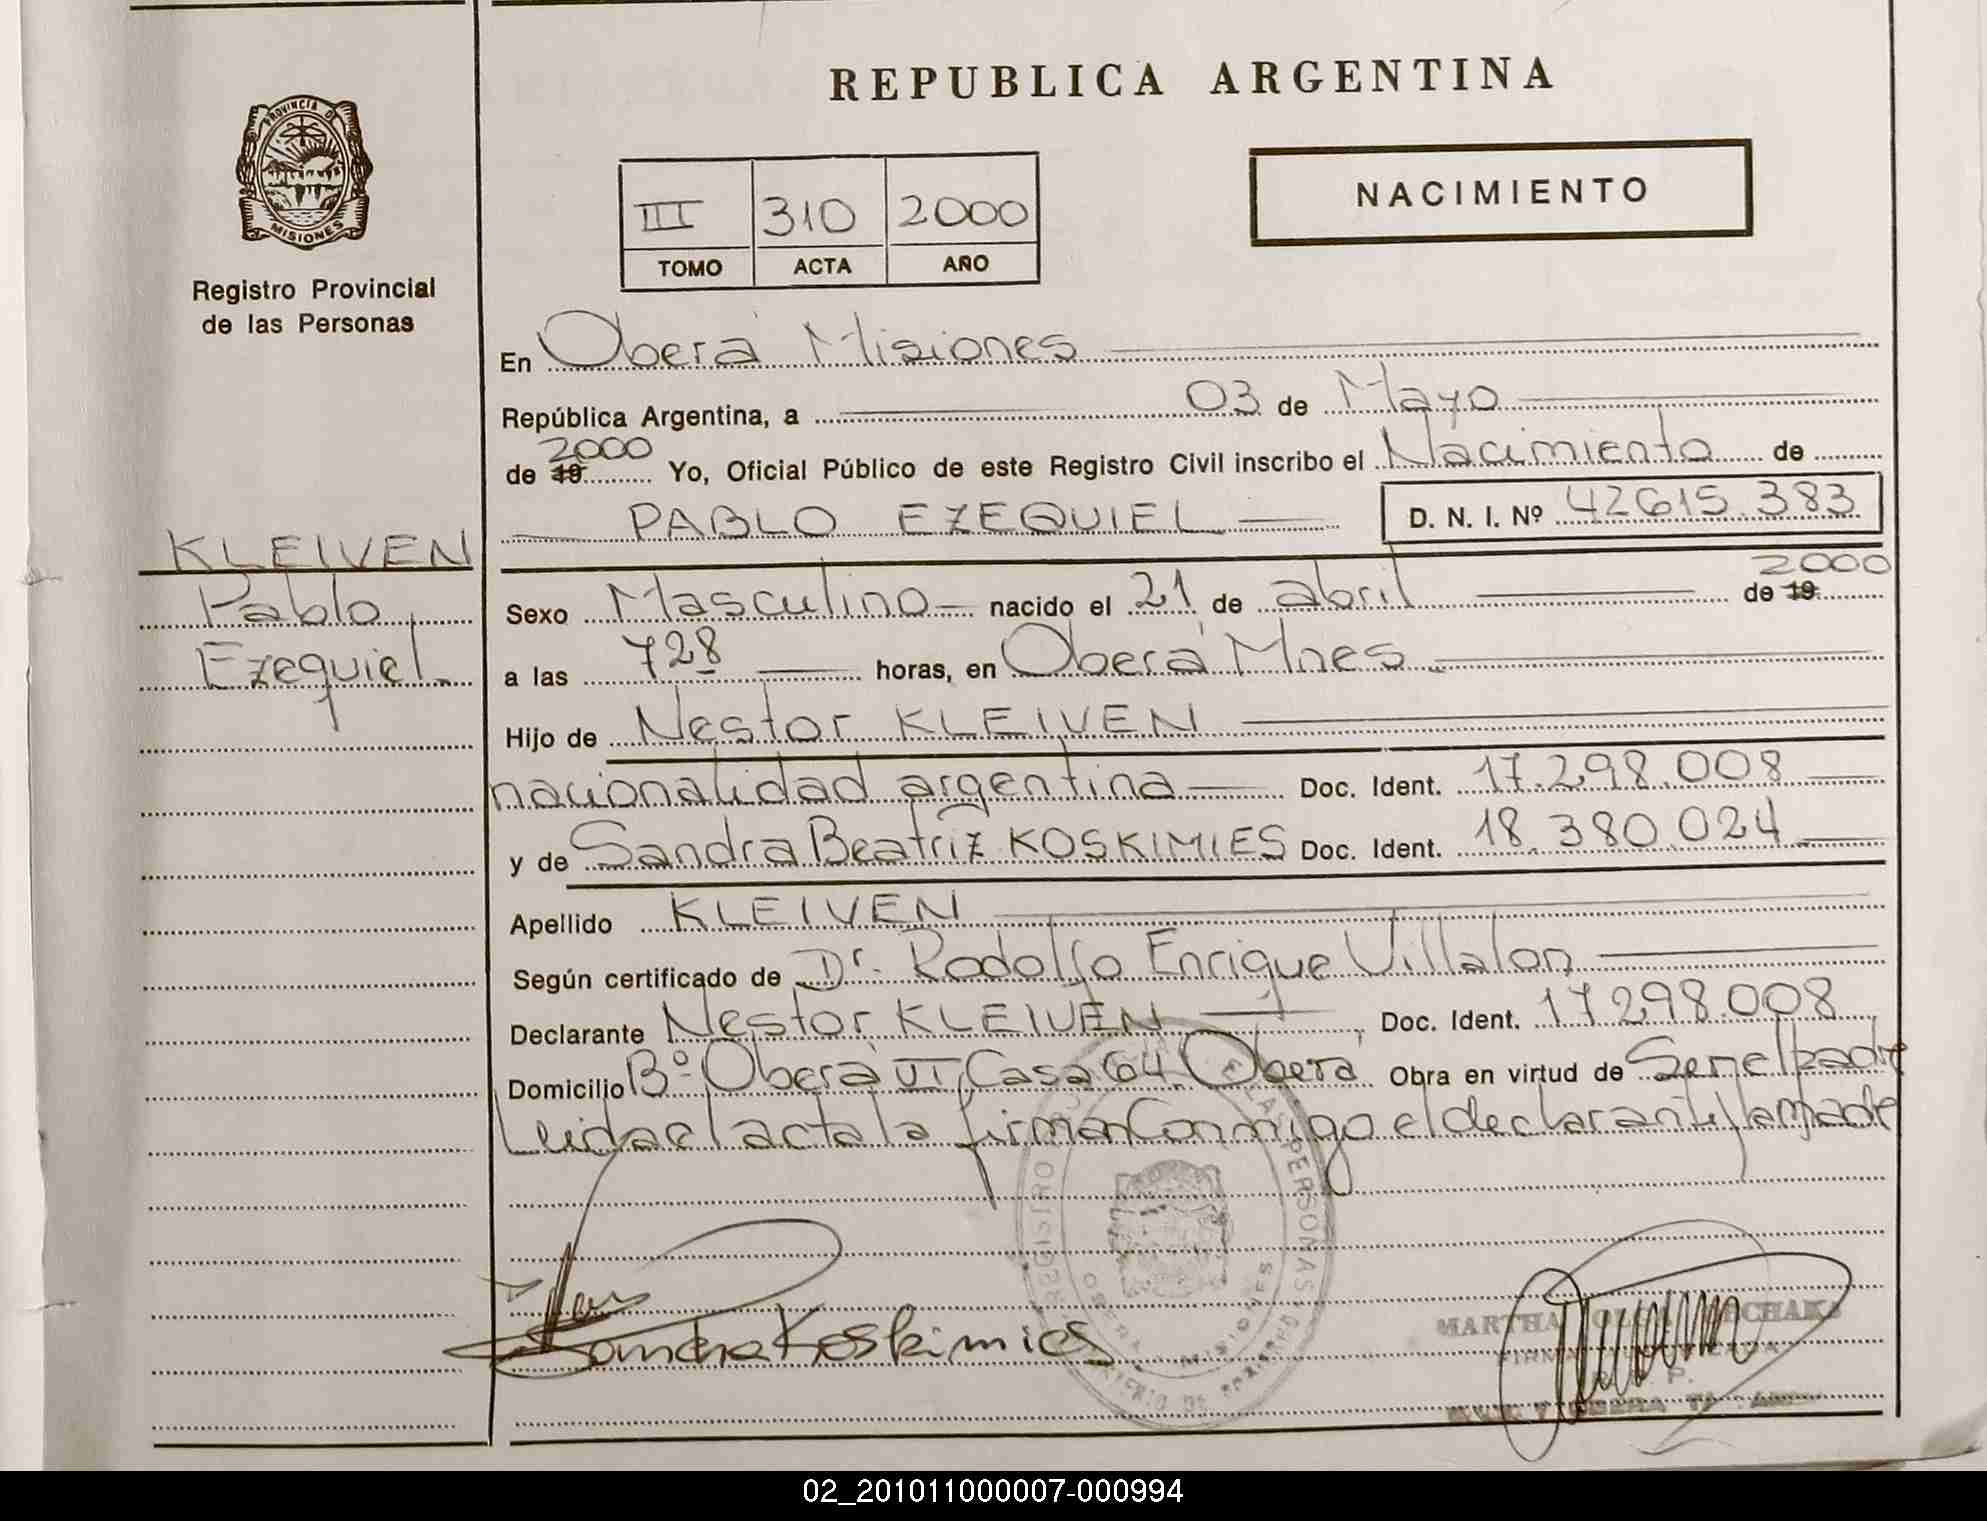 REPUBLICA ARGENTINA
PROVINCIA DE
MISIONES
Registro Provincial
de las Personas
III 310 2000
TOMO ACTA AÑO
NACIMIENTO
En Oberá Misiones
República Argentina, a 03 de Mayo
de 19 2000 Yo, Oficial Público de este Registro Civil inscribo el Nacimiento de
PABLO EZEQUIEL D. N. I. Nº 42615.383
KLEIVEN
Pablo
Ezequiel
Sexo Masculino nacido el 21 de abril de 19 2000
a las 728 horas, en Oberá Mnes
Hijo de Nestor KLEIVEN
nacionalidad argentina Doc. Ident. 17.298.008
y de Sandra Beatriz KOSKIMIES Doc. Ident. 18.380.024
Apellido KLEIVEN
Según certificado de Dr. Rodolfo Enrique Villalon
Declarante Nestor KLEIVEN, Doc. Ident. 17298.008
Domicilio Bº Oberá VI Casa 64 Oberá Obra en virtud de Ser el padre
Leida el acta la firman Conmigo el declarante y la madre
REGISTRO DE LAS PERSONAS
OBERA MISIONES
Sandra Koskimies
MARTHA OLGA
02_201011000007-000994